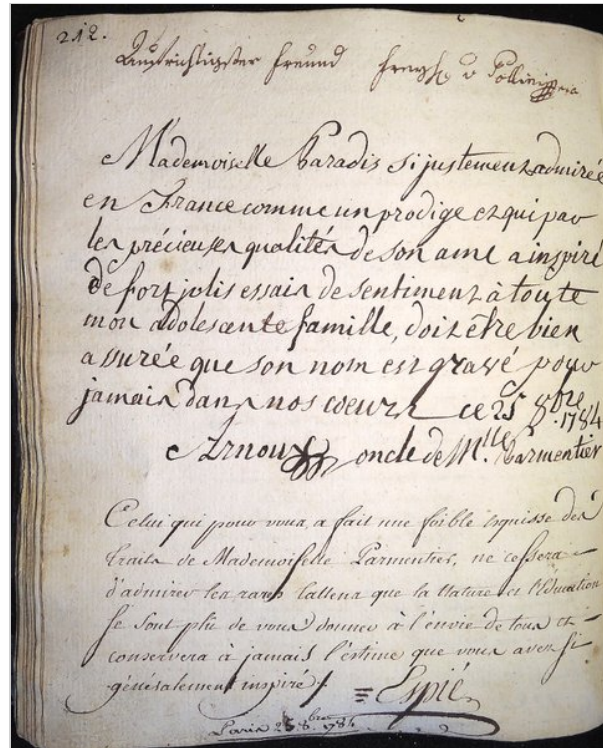 212.
Aufrichtigster Freund
Mademoiselle Paradis si justement admirée
en France comme un prodige et qui par
les précieuses qualités de son ame a inspiré
de fort jolis essais de sentiment à toute
mon adolescente famille, doit être bien
assurée que son nom est gravé pour
jamais dans nos coeurs ce 25 8bre
1784
Arnoux oncle de Mlle Parmentier
Celui qui pour vous, a fait une foible esquisse des
traits de Mademoiselle Parmentier, ne cessera
d'admirer les rares tallens que la Nature et l'éducation
se sont plû de vous donner à l'envie de tous et
conservera à jamais l'estime que vous avez si
généralement inspiré.
Espié
Paris 25 8bre 1784